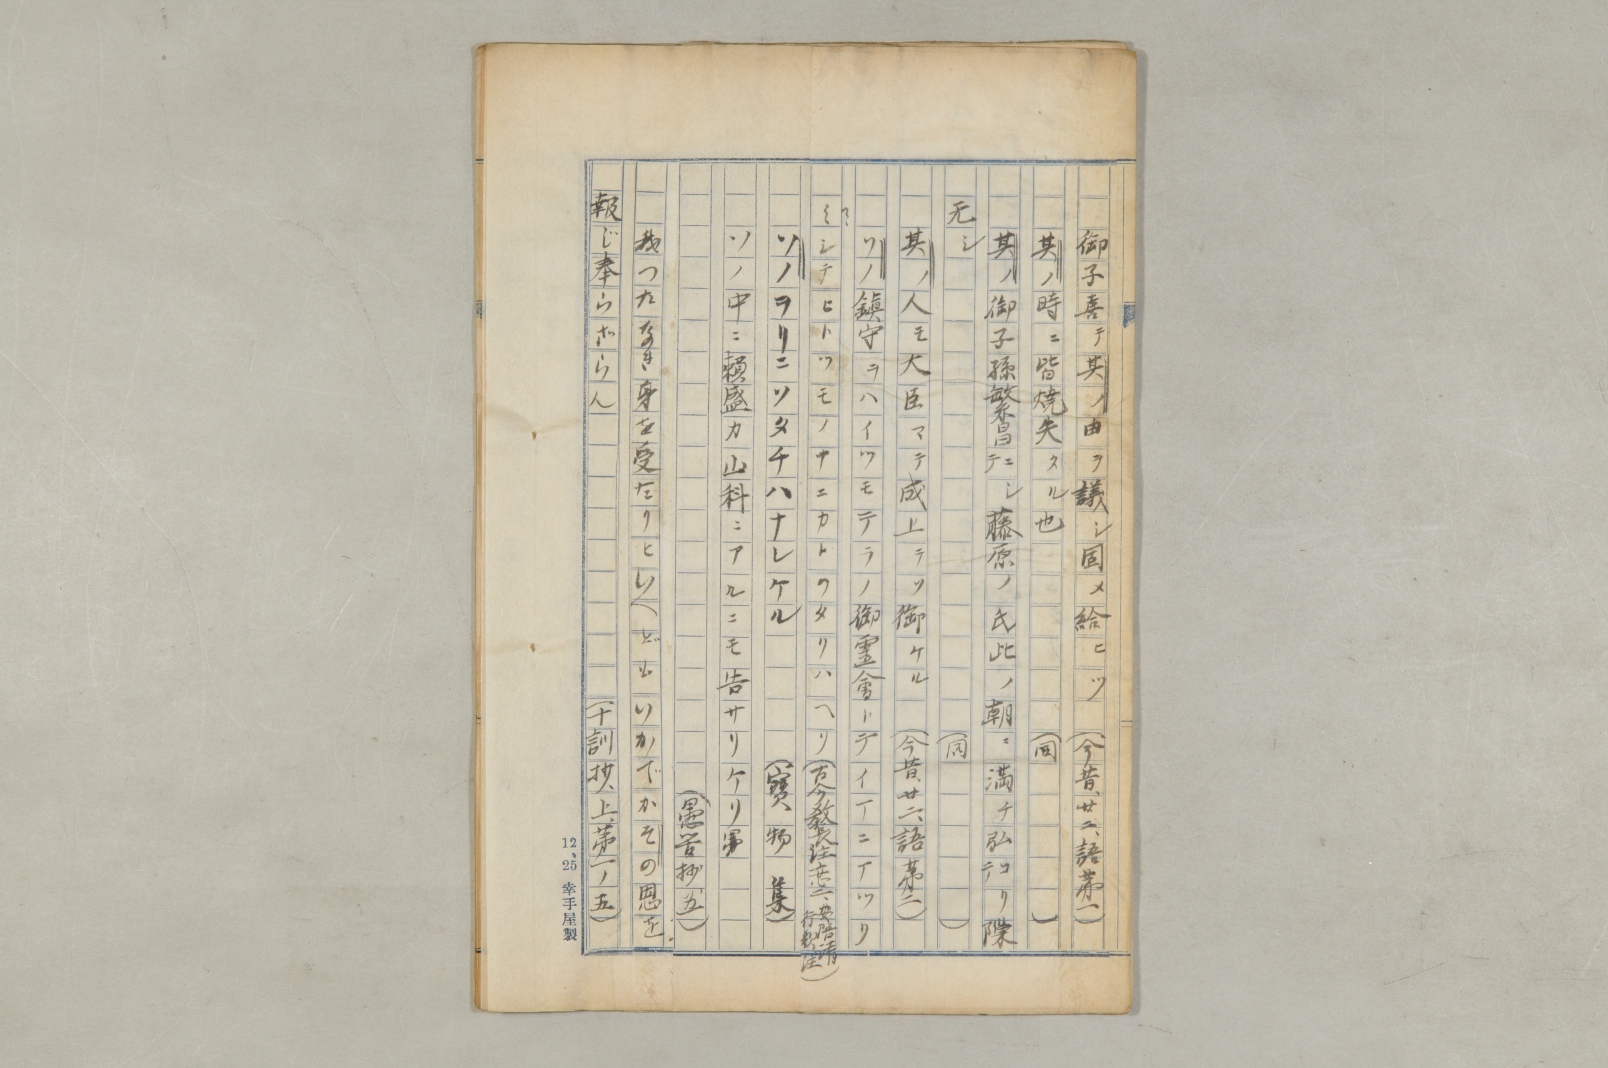 御子善テ其ノ由ヲ議シ固メ給ヒツ(今昔、廿二、語第一)
其ノ時ニ皆焼失タル也(同)
其ノ御子孫繁昌ニシテ藤原ノ氏此ノ朝ニ満チ弘コリテ隙
无シ(同)
其ノ人モ大臣マテ成上テソ御ケル(今昔、廿二、語第二)
ソノ鎮守ヲハイツモテラノ御霊會トテイワニアツリ
ミシテヒトツモノナニカトワタリハヘリ(古今教長注
ソノヲリニソタチハナレケル(寶物集)
ソノ中ニ頼盛カ山科ニアルニモ告サリケリ(愚管抄、五)
我つたなき身を受たりといへどもいかでかその恩を
報じ奉らざらん(十訓抄、上、第一ノ五)
12、25 幸手屋製